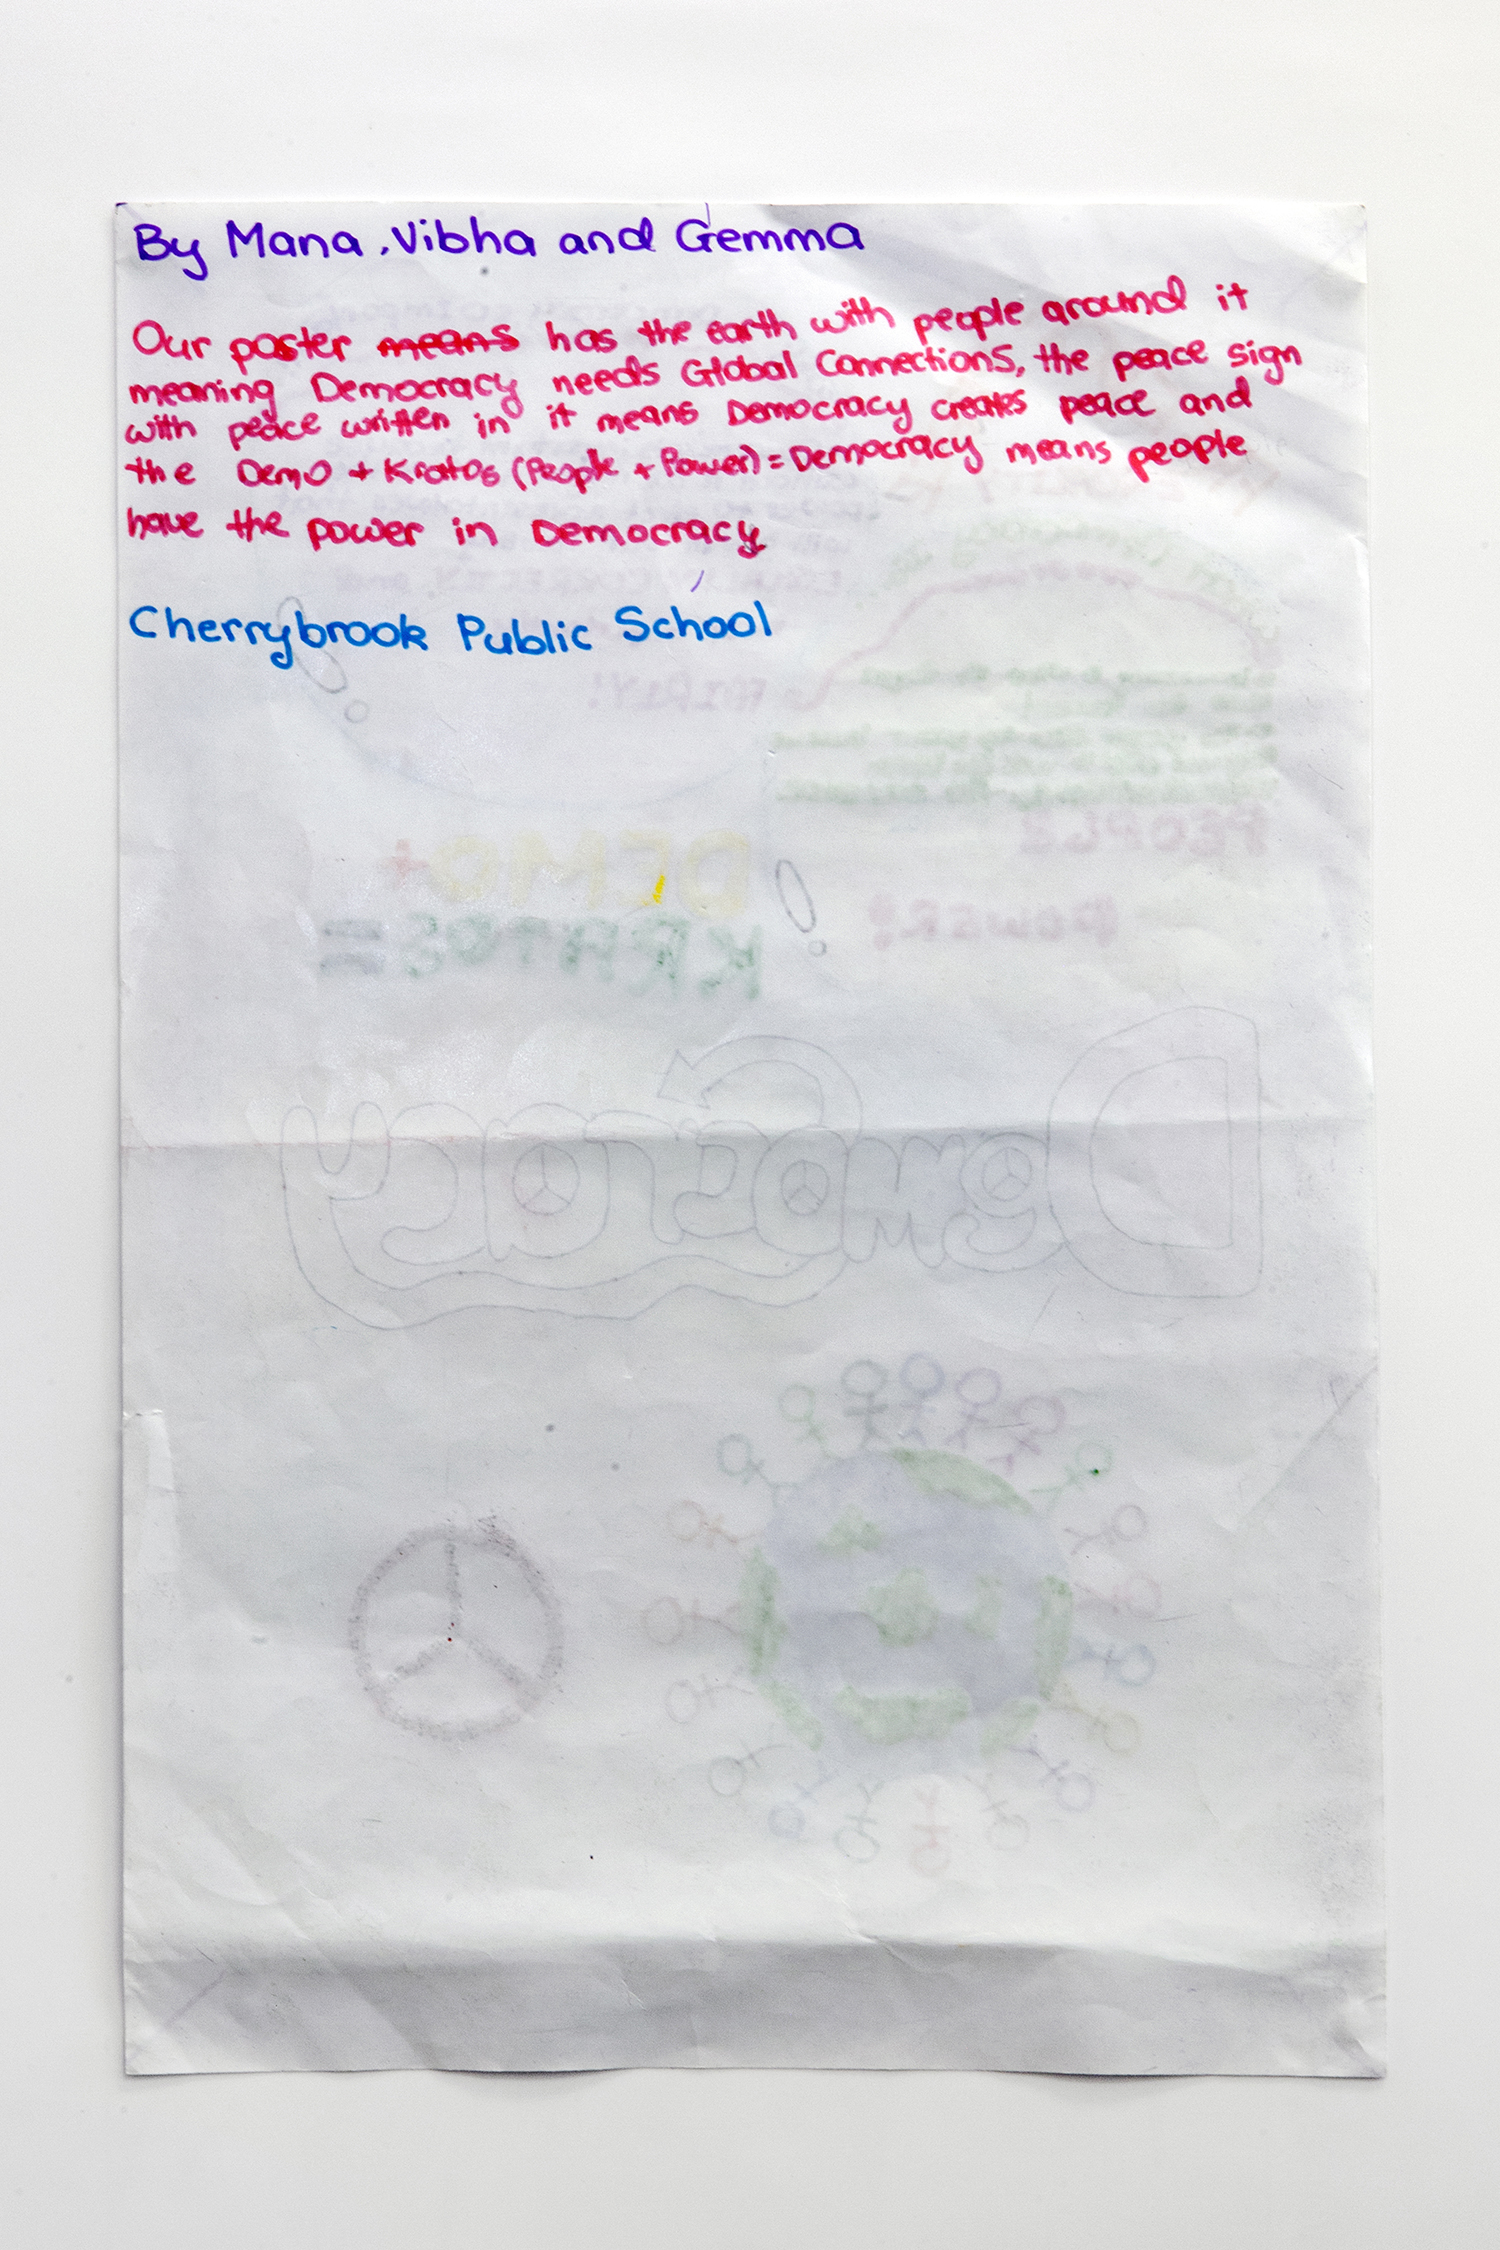 By Mana, Vibha and Gemma
Our poster means has the earth with people around it
meaning Democracy needs Global Connections, the peace sign
with peace written in it means Democracy creates peace and
the Demo + Kratos (People + Power) = Democracy means people
have the power in Democracy
Cherrybrook Public School
DEMO+
KRATOS =
PEOPLE
POWER!
Democracy